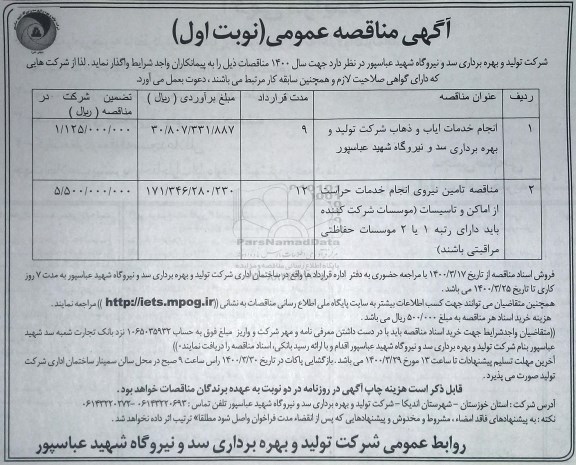 آگهی مناقصه عمومی(نوبت اول)
شرکت تولید و بهره برداری سد و نیروگاه شهید عباسپور در نظر دارد جهت سال ۱۴۰۰ مناقصات ذیل را به پیمانکاران واجد شرایط واگذار نماید . لذا از شرکت هایی
که دارای گواهی صلاحیت لازم و همچنین سابقه کار مرتبط می باشند ، دعوت بعمل می آورد.
ردیف عنوان مناقصه مدت قرارداد مبلغ برآوردی ( ریال ) تضمین شرکت در
مناقصه ( ریال )
۱ انجام خدمات ایاب و ذهاب شرکت تولید و ۹ ۳۰/۸۰۷/۳۳۱/۸۸۷ ۱/۱۲۵/۰۰۰/۰۰۰
بهره برداری سد و نیروگاه شهید عباسپور
۲ مناقصه تامین نیروی انجام خدمات حراست ۱۲ ۱۷۱/۳۴۶/۲۸۰/۲۳۰ ۵/۵۰۰/۰۰۰/۰۰۰
از اماکن و تاسیسات (موسسات شرکت کننده
باید دارای رتبه ۱ یا ۲ موسسات حفاظتی
مراقبتی باشند)
ParsNamadData
فروش اسناد مناقصه از تاریخ ۱۴۰۰/۳/۱۷ با مراجعه حضوری به دفتر اداره قراردادها واقع در ساختمان اداری شرکت تولید و بهره برداری سد و نیروگاه شهید عباسپور به مدت ۷ روز
کاری تا تاریخ ۱۴۰۰/۳/۲۵ می باشد .
همچنین متقاضیان می توانند جهت کسب اطلاعات بیشتر به سایت پایگاه ملی اطلاع رسانی مناقصات به نشانی ((http://iets.mpog.ir )) مراجعه نمایند.
هزینه خرید اسناد هر مناقصه به مبلغ ۵۰۰/۰۰۰ ریال می باشد.
((متقاضیان واجدشرایط جهت خرید اسناد مناقصه باید با در دست داشتن معرفی نامه و مهر شرکت و واریز مبلغ فوق به حساب ۱۰۶۵۰۳۵۹۳۲ نزد بانک تجارت شعبه سد شهید
عباسپور بنام شرکت تولید و بهره برداری سد و نیروگاه شهید عباسپور اقدام و با ارائه رسید بانکی، اسناد مناقصه را دریافت نمایند:))
آخرین مهلت تسلیم پیشنهادات تا ساعت ۱۳ مورخ ۱۴۰۰/۳/۲۹ می باشد. بازگشایی پاکات در تاریخ ۱۴۰۰/۳/۳۰ راس ساعت ۹ صبح در محل سالن سمینار ساختمان اداری شرکت
تولید صورت می پذیرد .
قابل ذکر است هزینه چاپ آگهی در روزنامه در دو نوبت به عهده برندگان مناقصات خواهد بود.
آدرس شرکت : استان خوزستان – شهرستان اندیکا – شرکت تولید و بهره برداری سد و نیروگاه شهید عباسپور تلفن تماس : ۰۶۱۴۳۲۲۰۶۹۳ –۰۶۱۴۳۲۲۰۲۷۳
نکته : به پیشنهادهای فاقد امضاء ، مشروط و مخدوش و پیشنهادهایی که پس از انقضاء مدت فراخوان واصل شود مطلقا" ترتیب اثر داده نخواهد شد .
روابط عمومی شرکت تولید و بهره برداری سد و نیروگاه شهید عباسپور